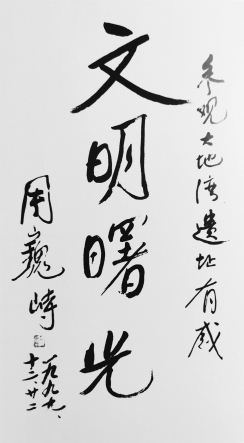 参观大地湾遗址有感
文明曙光
周巍峙
一九九九、
十二、廿二